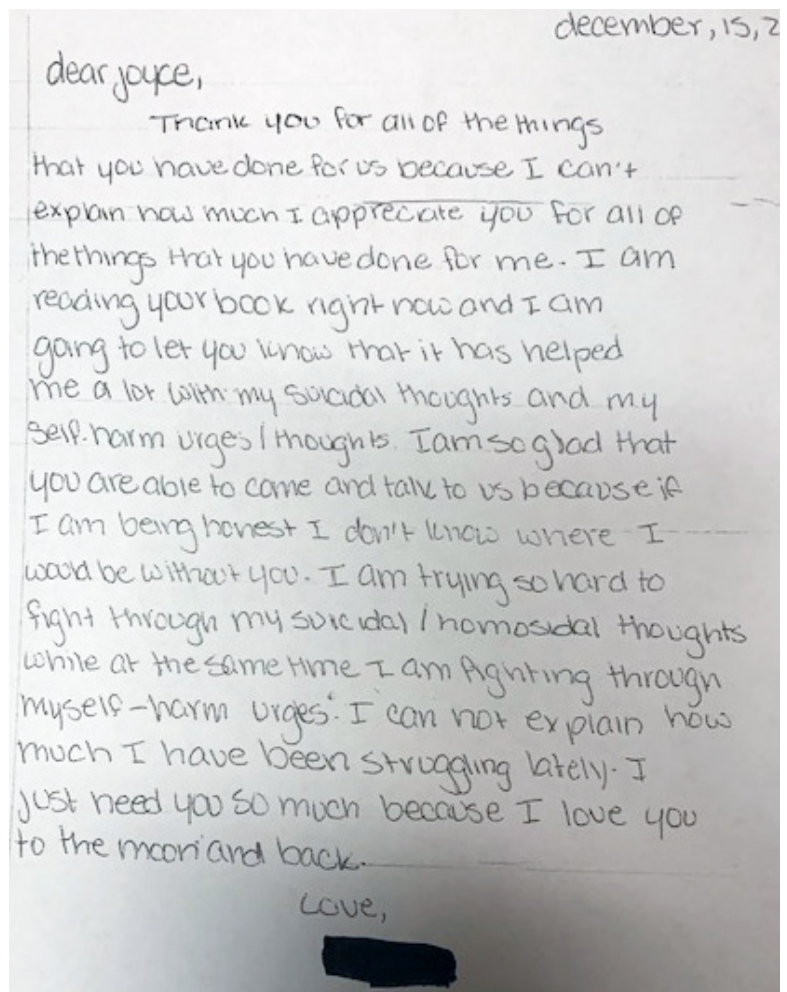 december, 15, 2
dear joyce,
Thank you for all of the things
that you have done for us because I can't
explain how much I appreciate you for all of
the things that you have done for me. I am
reading your book right now and I am
going to let you know that it has helped
me a lot with my suicidal thoughts and my
self-harm urges/thoughts. I am so glad that
you are able to come and talk to us because if
I am being honest I don't know where I
would be without you. I am trying so hard to
fight through my suicidal/homosidal thoughts
while at the same time I am fighting through
myself-harm urges. I can not explain how
much I have been struggling lately. I
just need you so much because I love you
to the moon and back.
Love,